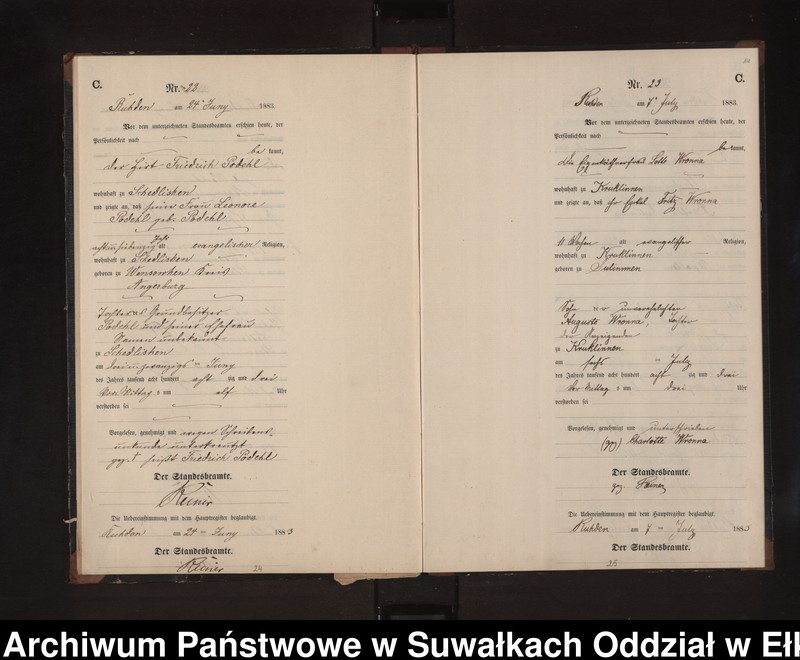 C.
Nr. 22
Ruhden am 24 Juny 1883.
Vor dem unterzeichneten Standesbeamten erschien heute, der
Persönlichkeit nach
be kannt,
der Hirt Friedrich Podehl
wohnhaft zu Schedlisken
und zeigte an, daß seine Frau Leonore
Podehl geb. Podehl
Jahr
alt evangelischer Religion,
wohnhaft zu Schedlisken
geboren zu Kreis
Angerburg
Tochter des Grundbesitzer
Podehl und seiner Ehefrau
Namen unbekannt
zu Schedlisken
am dreiundzwanzigsten Juny
des Jahres tausend acht hundert acht zig und drei
Vor Mittag s um elf Uhr
verstorben sei
Vorgelesen, genehmigt und wegen Schreibens-
unkunde unterkreuzt
heißt Friedrich Podehl
Der Standesbeamte.
Die Uebereinstimmung mit dem Hauptregister beglaubigt.
Ruhden am 24 ten Juny 1883
Der Standesbeamte.
24
C.
Nr. 23
Ruhden am 7 July 1883.
Vor dem unterzeichneten Standesbeamten erschien heute, der
Persönlichkeit nach
be kannt,
die Eigenkäthnerfrau Lotte Wronna
wohnhaft zu Kruklinnen
und zeigte an, daß ihr Enkel Fritz Wronna
11 Wochen alt evangelischer Religion,
wohnhaft zu Kruklinnen
geboren zu Sulimmen
Sohn der unverehelichten
Auguste Wronna, Tochter
der Anzeigenden
zu Kruklinnen
am sechs ten July
des Jahres tausend acht hundert acht zig und drei
Vor Mittag s um drei Uhr
verstorben sei
Vorgelesen, genehmigt und unterschrieben
(gez) Charlotte Wronna
Der Standesbeamte.
gez.
Die Uebereinstimmung mit dem Hauptregister beglaubigt.
Ruhden am 7 ten July 1883
Der Standesbeamte.
25
Archiwum Państwowe w Suwałkach Oddział w Ełk